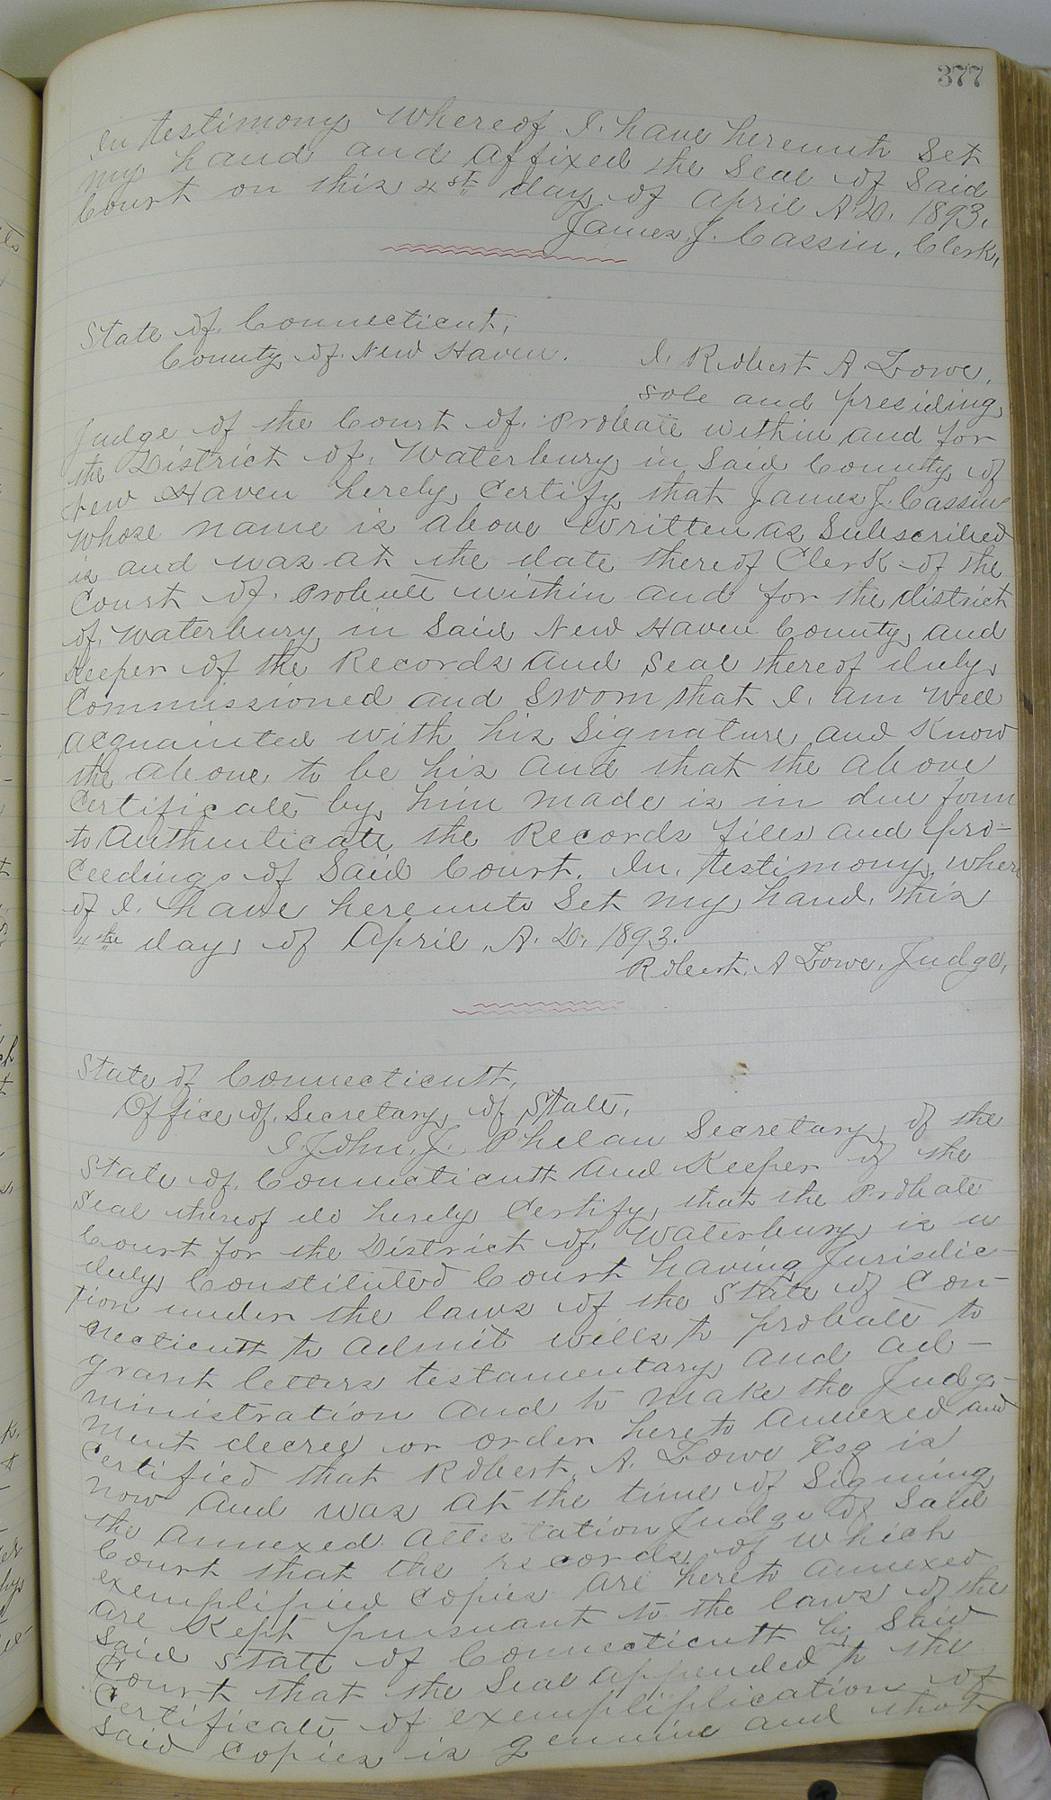 377
In testimony Whereof I. have hereunto Set
my hand and affixed the Seal of Said
Court on this 4st day of April A.D. 1893.
James J. Cassin, Clerk,
State of Connecticut,
County of New Haven. I. Robert A Lowe,
sole and presiding
Judge of the Court of Probate within and for
the District of Waterbury in Said County of
New Haven hereby Certify that James J. Cassin
whose name is above written as Subscribed
is and was at the date thereof Clerk of the
Court of Probate within and for the district
of Waterbury in Said New Haven County and
Keeper of the Records and Seal thereof duly
Commissioned and Sworn that I. am Well
acquainted with his Signature and Know
the above to be his and that the above
Certificate by him made is in due form
to Authenticate the Records files and pro-
ceedings of Said Court. In testimony where
of I. have hereunto Set my hand this
4the day of April A. D. 1893.
Robert. A Lowe, Judge,
State of Connecticutt,
Office of Secretary of State,
I John J. Phelan Secretary of the
State of Connecticutt And Keeper of the
Seal thereof do hereby Certify that the Probate
Court for the District of Waterbury is a
duly Constituted Court having Jurisdic-
tion under the laws of the State of Con-
necticutt to Admit wills to probate to
grant letters testamentary and ad-
ministration and to make the Judg-
ment decree or order hereto Annexed and
Certified that Robert. A. Lowe Esq is
now And was at the time of Signing
the Annexed Attestation Judge of Said
Court that the records of which
exemplified Copies are hereto Annexed
are Kept pursuant to the laws of the
Said State of Connecticutt by Said
Court that the Seal appended to the
Certificate of exemplification of
Said Copies is genuine and that